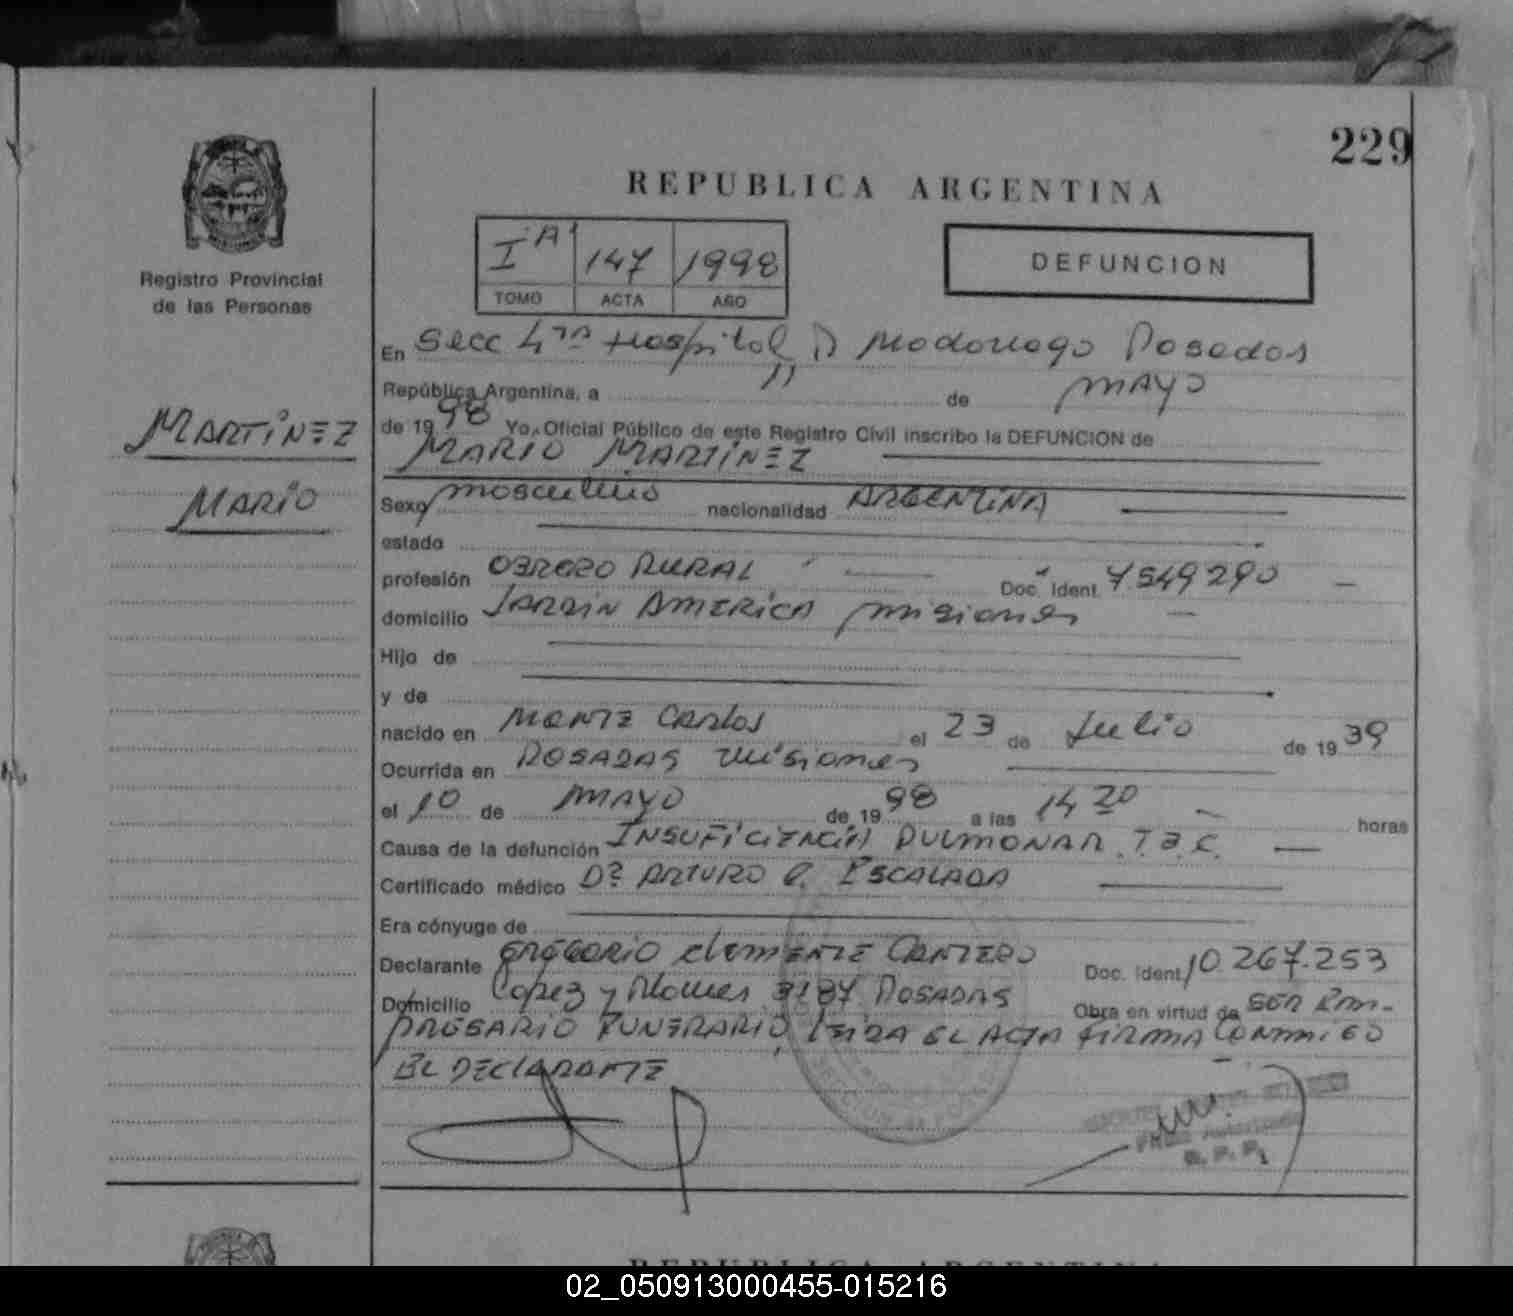 229
REPUBLICA ARGENTINA
Registro Provincial
de las Personas
I "A" 147 1998
TOMO ACTA AÑO
DEFUNCION
En Secc 4ta Hospital D Madariaga Posadas
República Argentina, a 11 de mayo
de 1998 Yo, Oficial Público de este Registro Civil inscribo la DEFUNCION de
MARTINEZ
MARIO
MARIO MARTINEZ
Sexo masculino nacionalidad ARGENTINA
estado
profesión OBRERO RURAL Doc. Ident. 7.549290
domicilio JARDIN AMERICA misiones
Hijo de
y de
nacido en MONTE CARLOS el 23 de Julio de 1939
Ocurrida en POSADAS misiones
el 10 de MAYO de 1998 a las 14 20 horas
Causa de la defunción INSUFICIENCIA PULMONAR. T.B.C.
Certificado médico Dr ARTURO ESCALADA
Era cónyuge de
Declarante GREGORIO CLEMENTE CANTERO Doc. Ident. 10.267.253
Domicilio Lopez y Planes 3187 POSADAS Obra en virtud de SER EM-
PRESARIO FUNERARIO LEIDA EL ACTA FIRMA CONMIGO
EL DECLARANTE
R.P.P.
REPUBLICA ARGENTINA
02_050913000455-015216